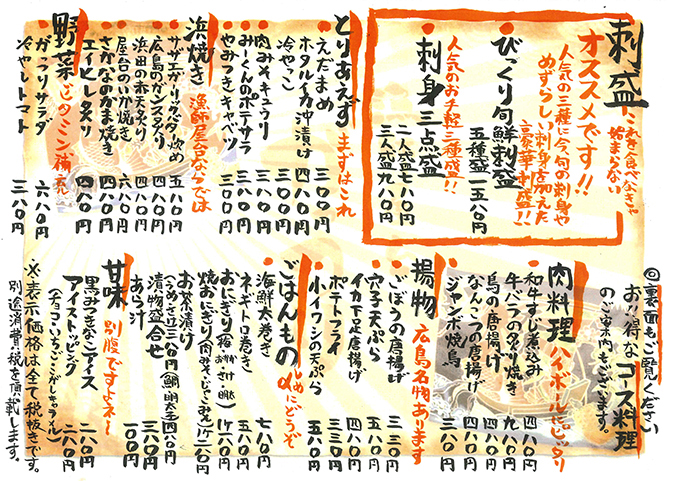 刺盛
これを食べなきゃ
始まらない
オススメです!!
人気の三種に今旬の刺身や
めずらしい刺身を加えた
豪華刺盛!!
びっくり旬鮮刺盛
五種盛 一五八〇円
人気のお手軽三種盛!!
刺身三点盛
二人盛 七八〇円
三人盛 九八〇円
とりあえず まずはこれ
えだまめ 三〇〇円
ホタルイカ沖漬け 四八〇円
冷やっこ 三〇〇円
肉みそきゅうり 三八〇円
みーくんのポテサラ 三八〇円
やみつきキャベツ 三〇〇円
浜焼き 漁師屋台ならでは
サザエガーリックバター炒め 五八〇円
広島のガンス炙り 四八〇円
浜田の赤天炙り 四八〇円
屋台のいか焼き 六八〇円
さかなのかま焼き 四八〇円
エイヒレ炙り 四八〇円
野菜 ビタミン補給
ガッツリサラダ 六八〇円
冷やしトマト 三八〇円
◎裏面もご覧ください
お得なコース料理
のご案内もございます。
肉料理 ハイボールにピッタリ
和牛すじ煮込み 四八〇円
牛バラの炙り焼き 九八〇円
鳥の唐揚げ 四八〇円
なんこつの唐揚げ 四八〇円
ジャンボ焼鳥 三八〇円
揚物 広島名物あります
ごぼうの唐揚げ 三三〇円
穴子天ぷら 五八〇円
イカ下足唐揚げ 四八〇円
ポテトフライ 三三〇円
小イワシの天ぷら 五八〇円
ごはんもの 〆にどうぞ
海鮮太巻き 七八〇円
ネギトロ巻き 五八〇円
おにぎり
焼おにぎり
お茶漬け
漬物盛合せ 三八〇円
あら汁 一〇〇円
甘味 別腹ですよネー
黒みつきなこアイス 二八〇円
アイストッピング 二八〇円
(チョコ・いちご・こがしキャラメル)
※表示価格は全て税抜きです。
別途消費税を頂戴します。